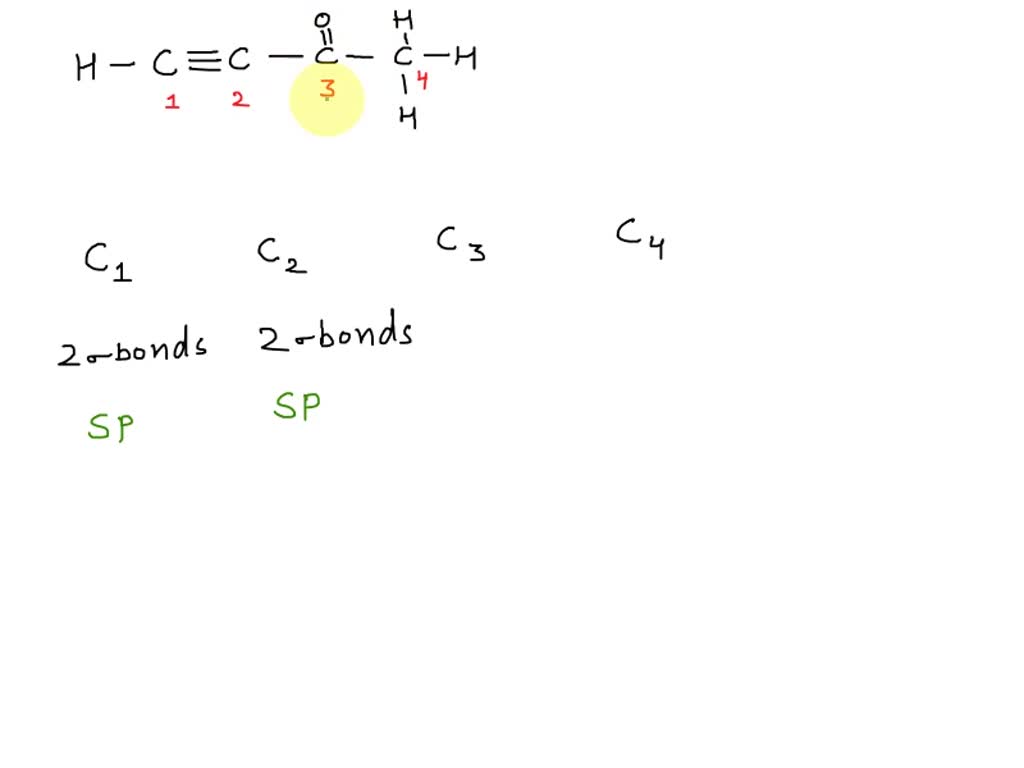 O H
H - C ≡ C - C - C - H
1 2 3 4
H
C1 C2 C3 C4
2σ-bonds 2σ-bonds
SP SP